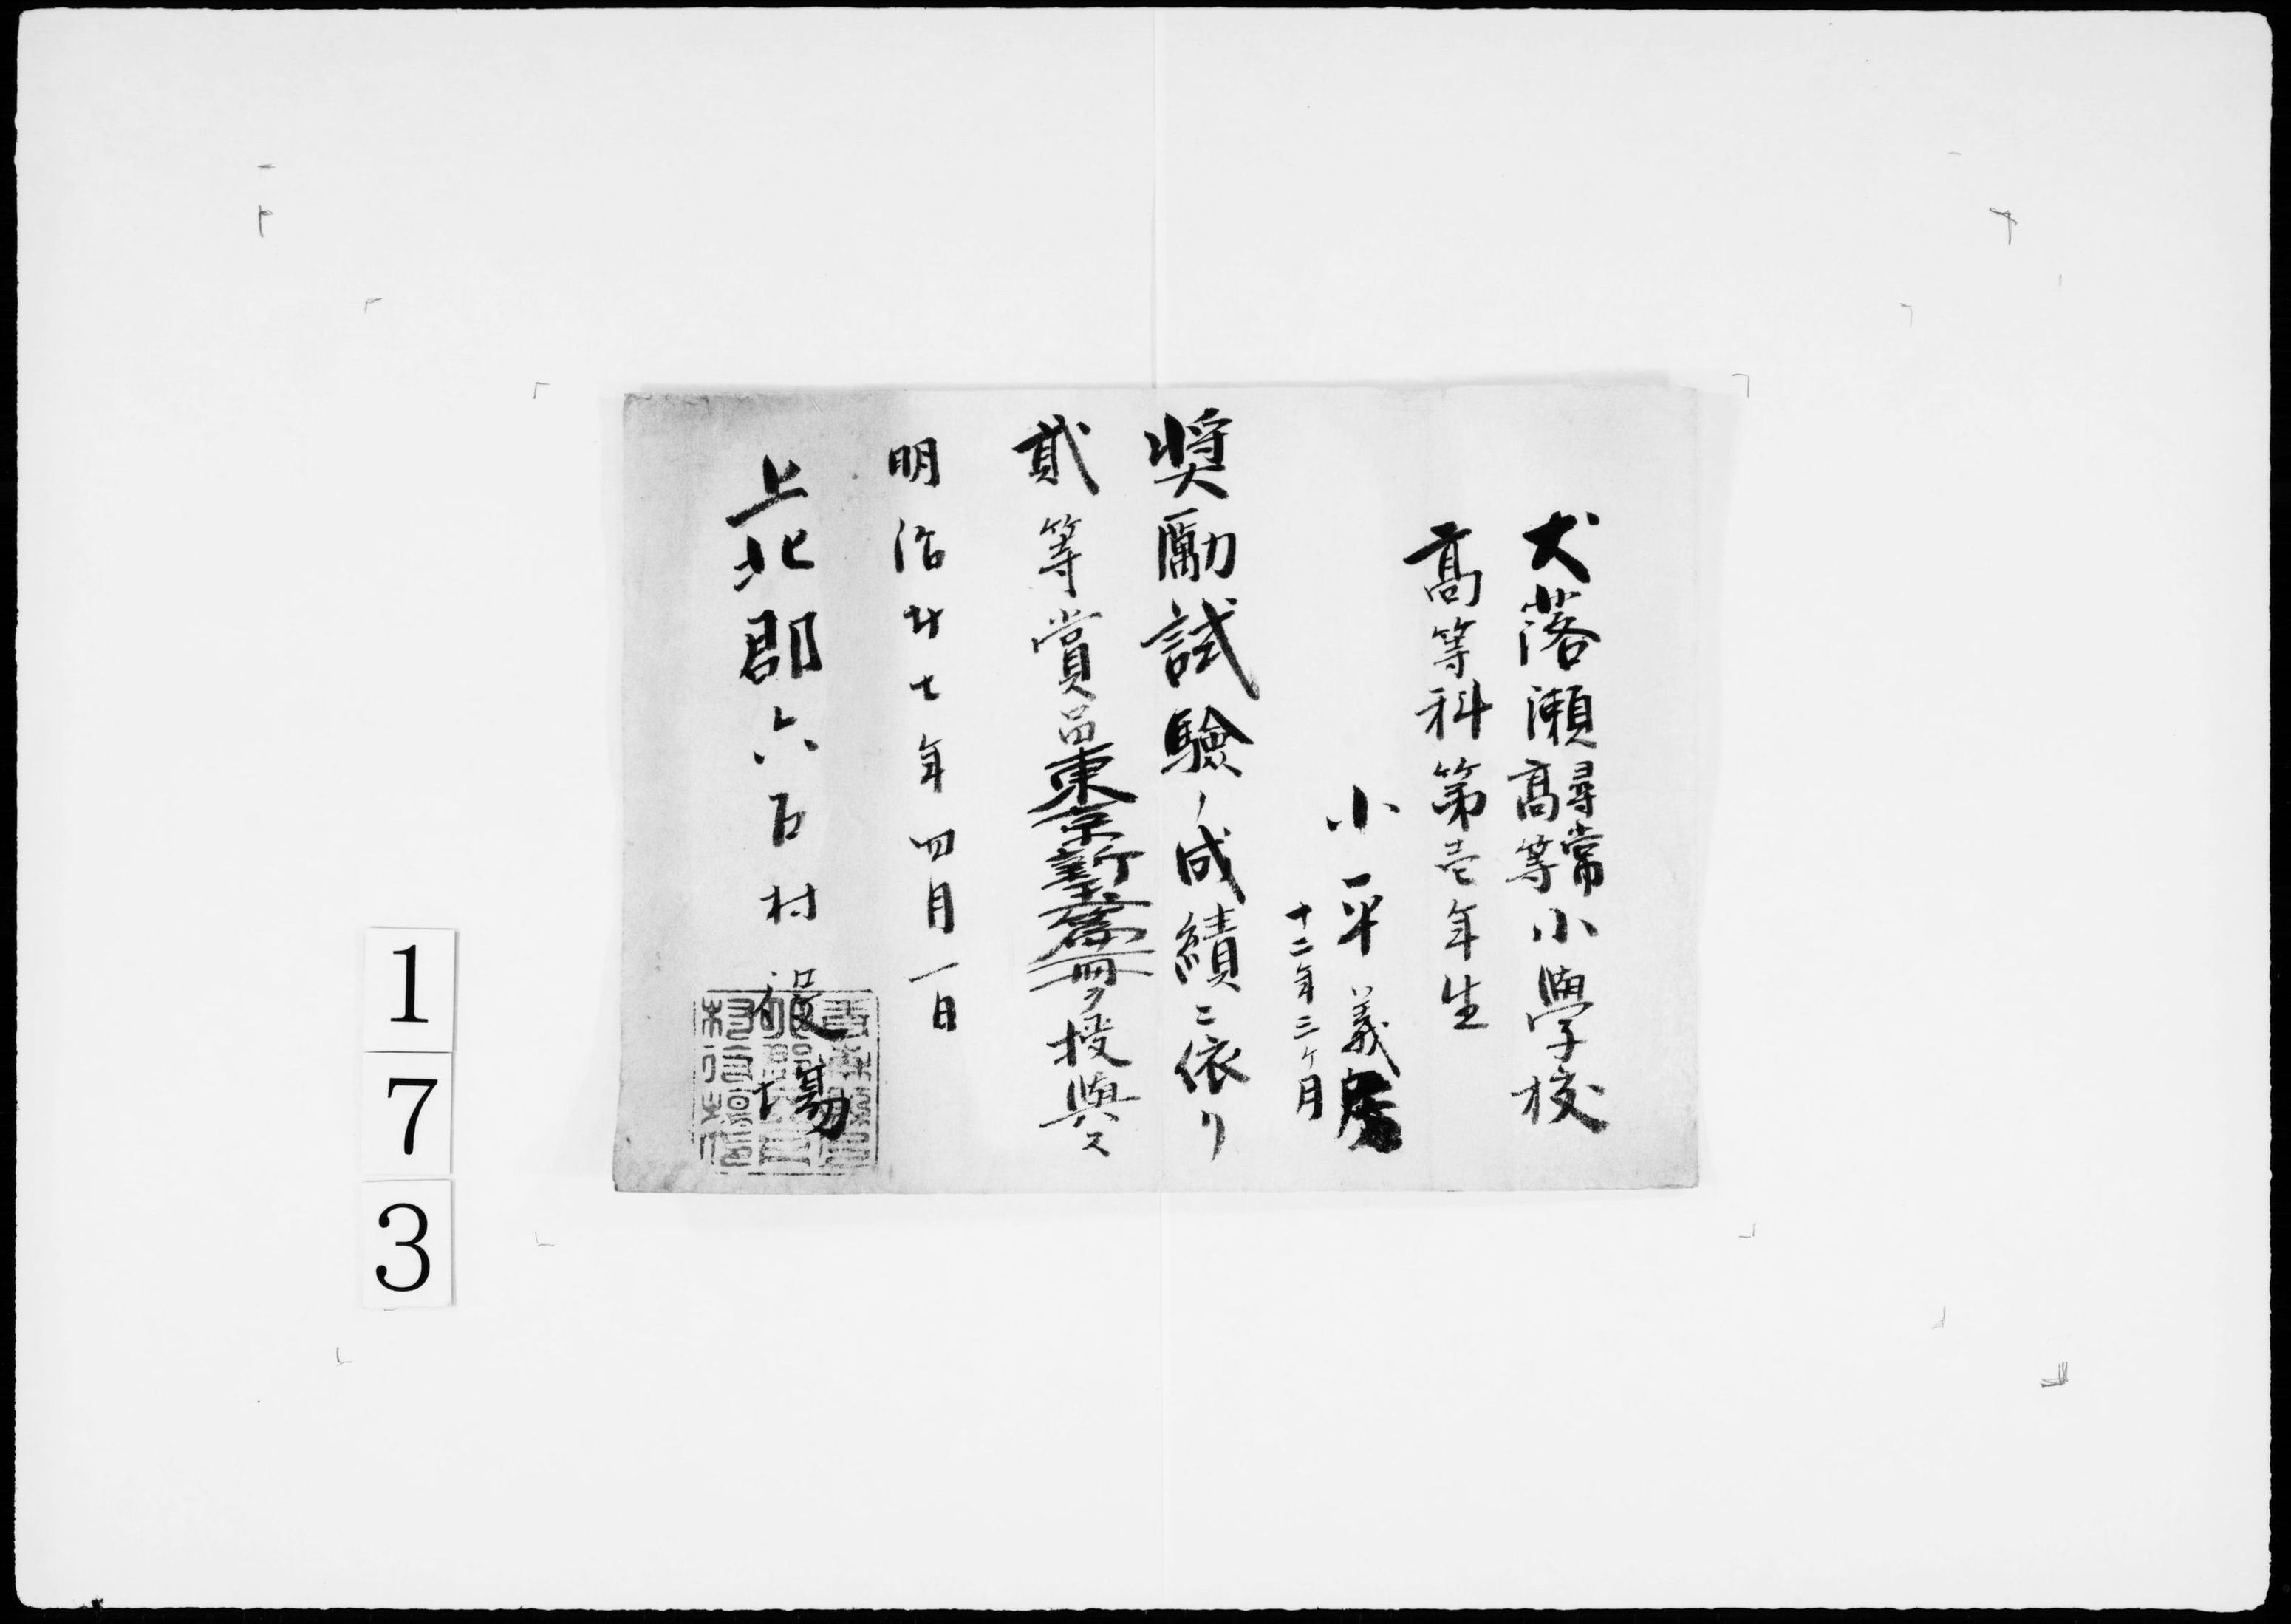 犬落瀬尋常高等小學校
高等科第壱年生
小平義
十二年三ヶ月
奨勵試驗ノ成績ニ依リ
貳等賞品東京新冊ヲ授與ス
明治廿七年四月一日
上北郡六戸村役場
173